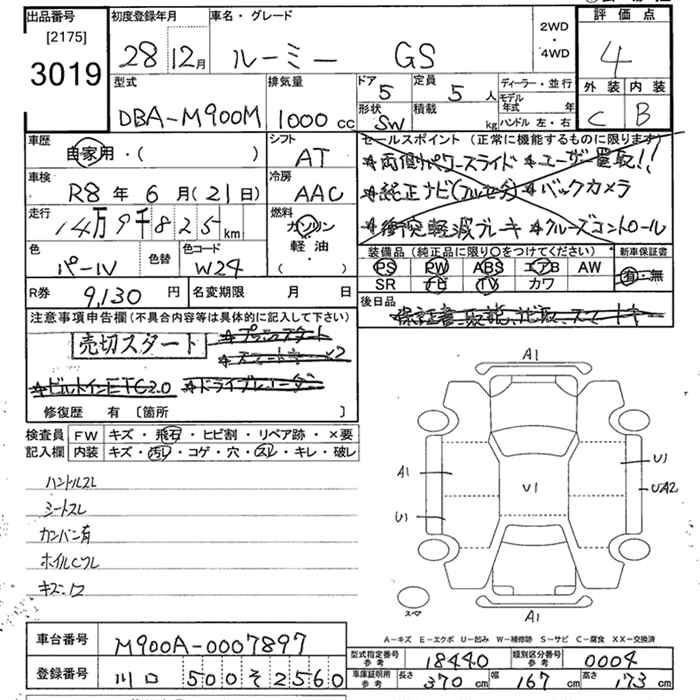 出品番号
[2175]
3019
初度登録年月
28 12月
車名・グレード
ルーミー GS
2WD・4WD
評価点
4
外装 内装
C B
型式
DBA-M900M
排気量
1000 cc
ドア 5
定員 5 人
ディーラー・並行
モデル年式 年
形状 SW
積載 kg
ハンドル 左・右
車歴
自家用・( )
シフト
AT
車検
R8 年 6 月(21日)
冷房
AAC
走行
14万9千825 km
燃料
ガソリン
軽油
( )
色
パール
色替
色コード
W24
R券 9,130 円
名変期限 月 日
セールスポイント(正常に機能するものに限ります)
★両側パワースライド ★ユーザー買取!!
★純正ナビ(フルセグ) ★バックカメラ
★衝突軽減ブレーキ ★クルーズコントロール
装備品(純正品に限り○をつけてください)
新車保証書
PS PW ABS エアB AW
SR ナビ TV カワ
有・無
後日品
保証書、取説、ナビ取、スマートキー
注意事項申告欄(不具合内容等は具体的に記入して下さい)
売切スタート
★プッシュスタート
★スマートキー×2
★ビルトインETC2.0 ★ドライブレコーダー
修復歴 有 [箇所 ]
検査員記入欄
FW キズ・飛石・ヒビ割・リペア跡・×要
内装 キズ・汚レ・コゲ・穴・スレ・キレ・破レ
ハンドルスレ
シートスレ
カンバン有
ホイルCフレ
キズ・凹
A1
A1
U1
U1
U1
UA2
A1
スペア
A-キズ E-エクボ U-凹み W-補修跡 S-サビ C-腐食 XX-交換済
車台番号
M900A-0007897
登録番号
川口 500 そ 2560
型式指定番号 参考
18440
類別区分番号 参考
0004
車庫証明用 参考
長さ 370 cm
幅 167 cm
高さ 173 cm